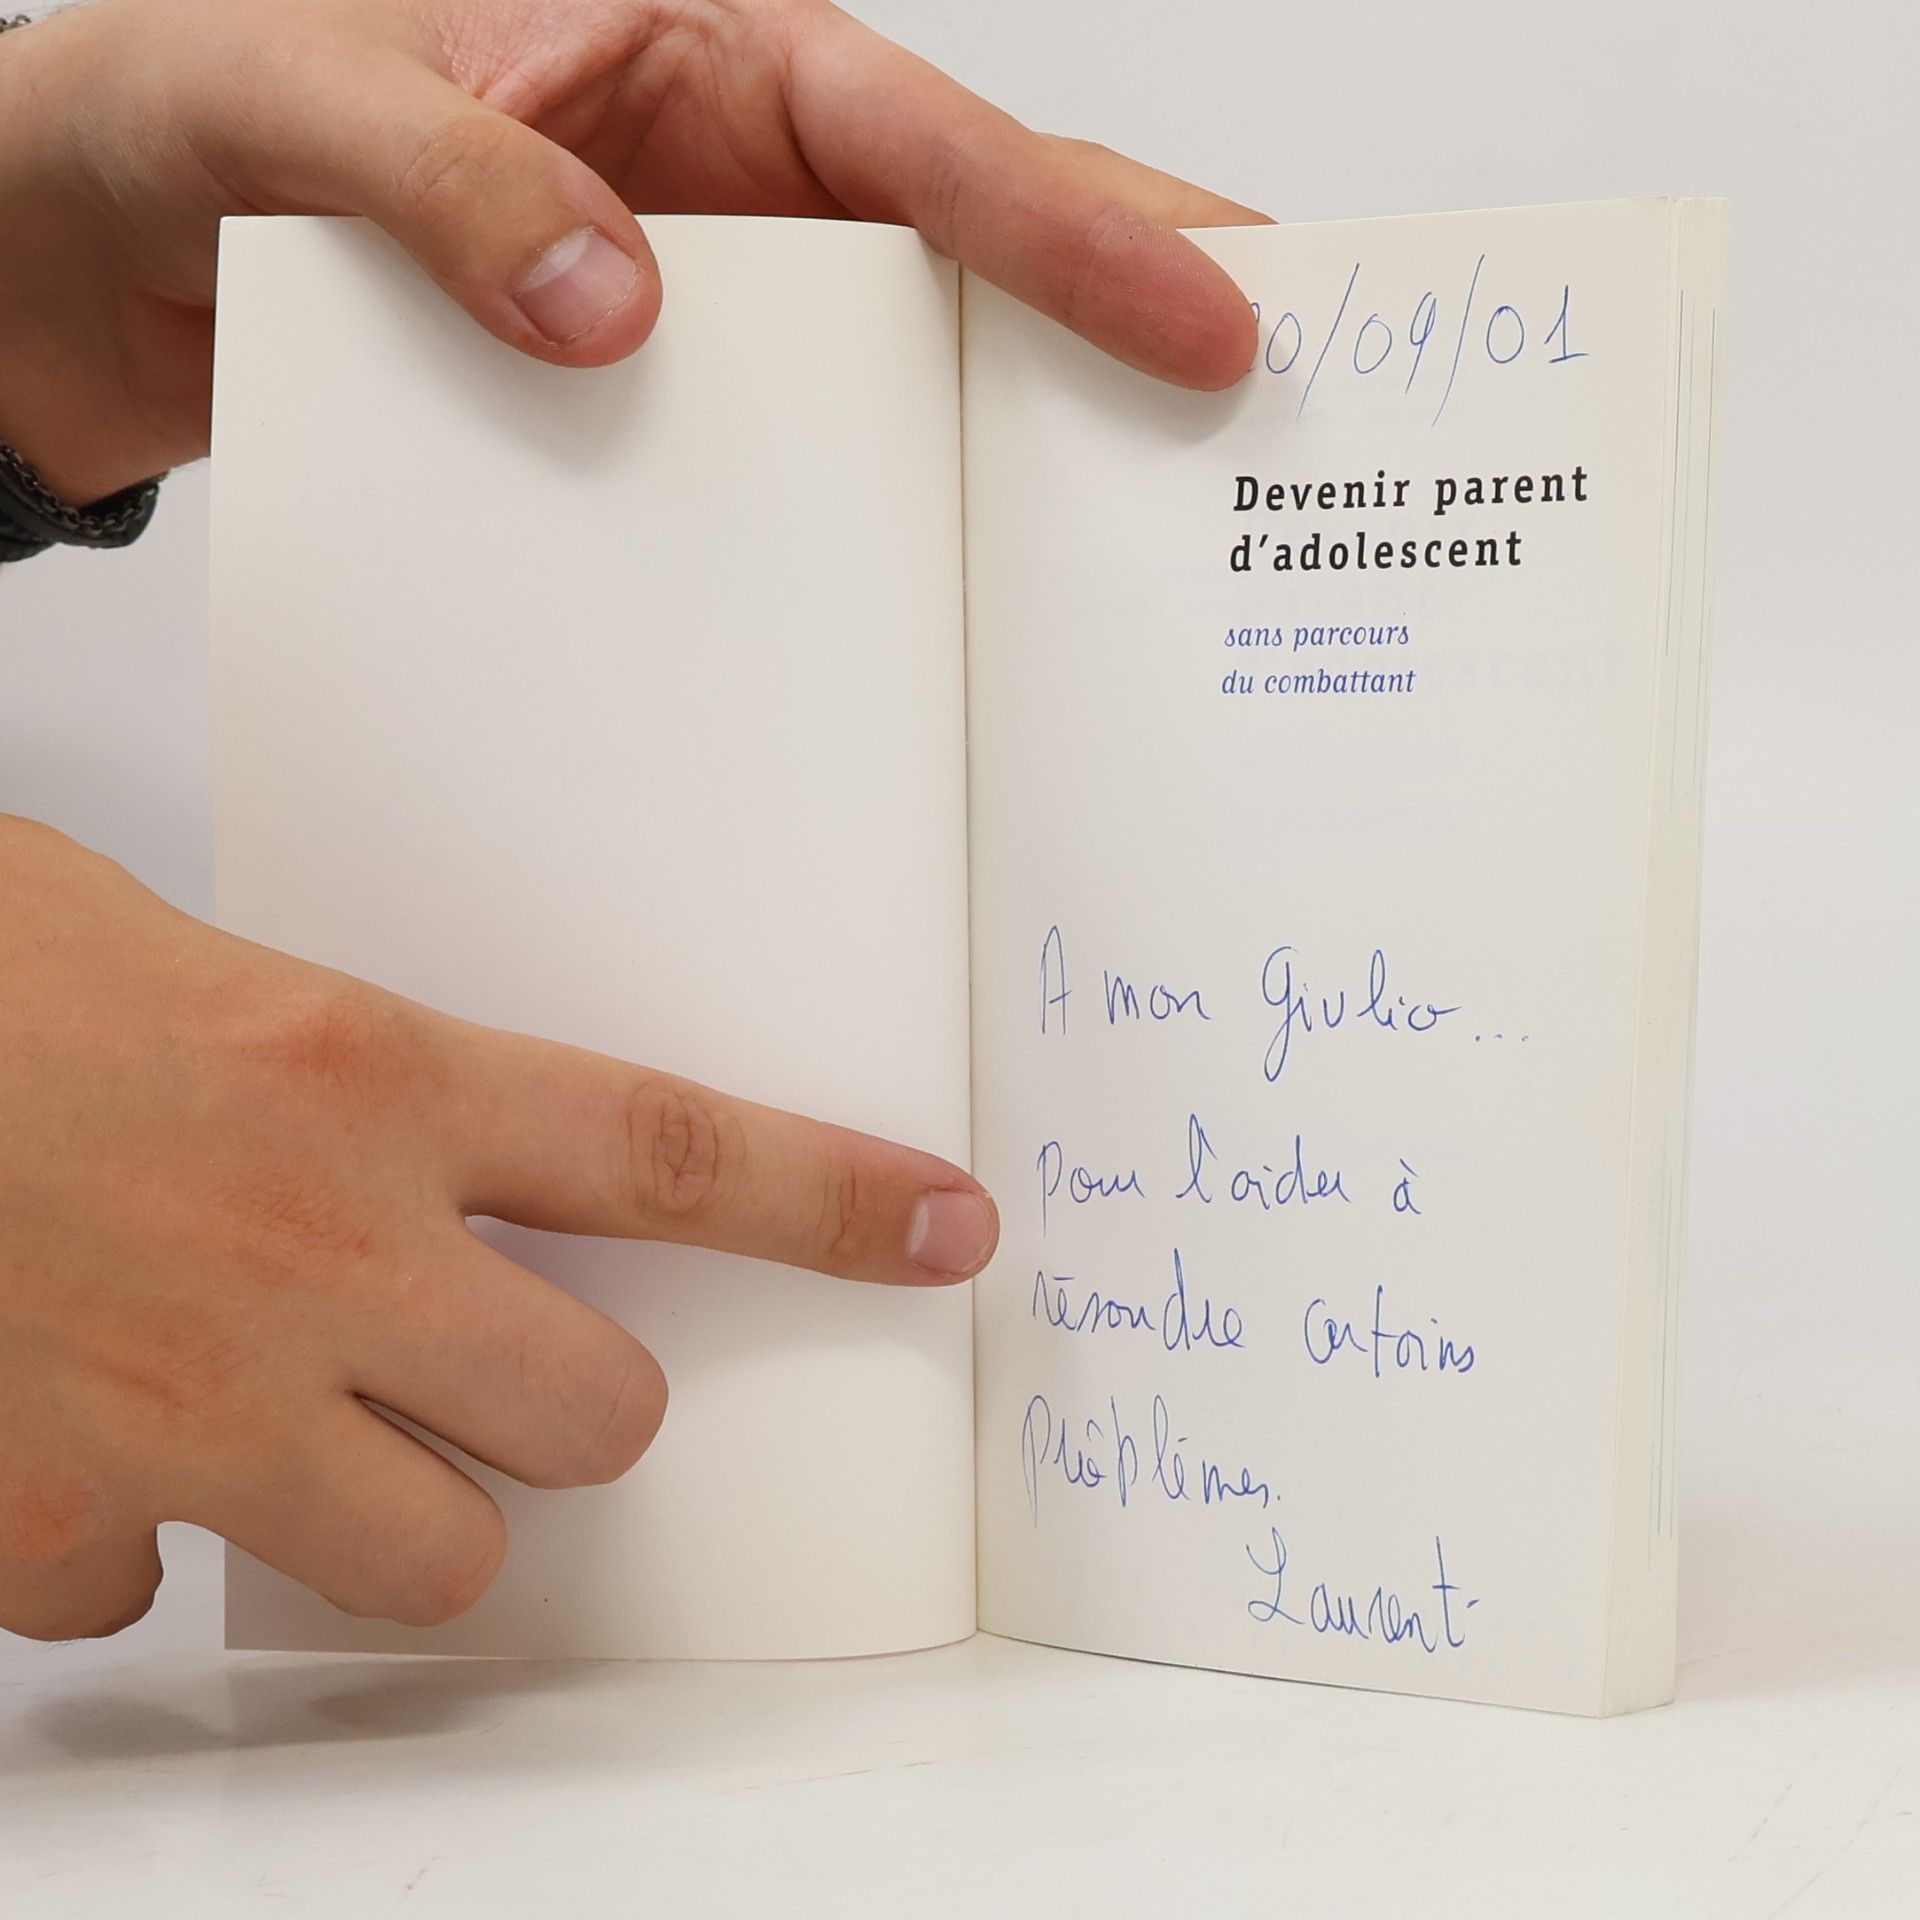 0/09/01
Devenir parent
d'adolescent
sans parcours
du combattant
A mon Giulio...
pour l'aider à
résoudre certains
prôblèmes.
Laurent